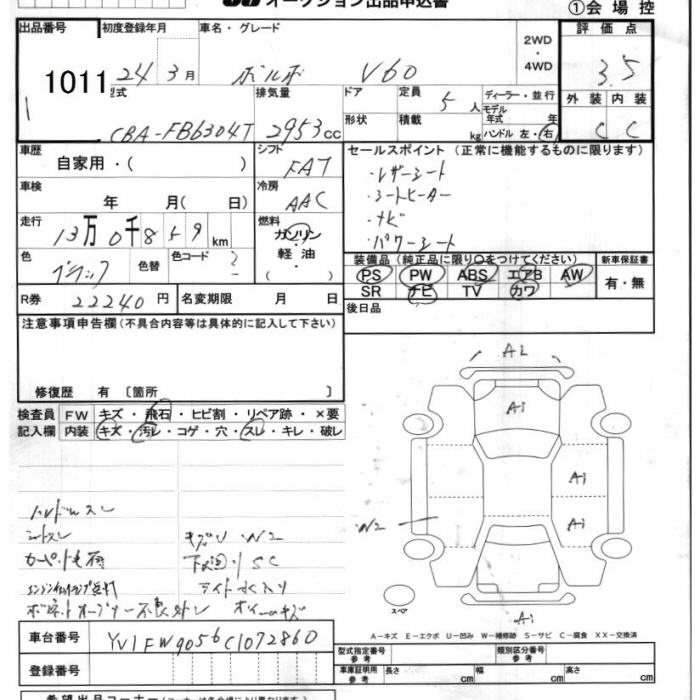 オークション出品申込書 ①会場控
出品番号 初度登録年月 車名・グレード 2WD・4WD 評価点
1011 24年3月 ボルボ V60 3.5
型式 排気量 ドア 定員 ディーラー・並行 外装 内装
CBA-FB6304T 2953cc 形状 積載 5人 kg モデル年式 年 ハンドル 左・右 C C
車歴 シフト セールスポイント (正常に機能するものに限ります)
自家用・( ) FAT ・レザーシート
車検 冷房 ・シートヒーター
年 月( 日) AAC ・ナビ
走行 燃料 ・パワーシート
13万0千859km ガソリン・軽油・( )
色 色替 色コード 装備品(純正品に限り○をつけてください) 新車保証書
ブラック PS PW ABS エアB AW 有・無
R券 22240円 名変期限 月 日 SR ナビ TV カワ
注意事項申告欄(不具合内容等は具体的に記入して下さい) 後日品
修復歴 有 〔箇所 〕
検査員 FW キズ・飛石・ヒビ割・リペア跡・×要
記入欄 内装 キズ・汚レ・コゲ・穴・スレ・キレ・破レ
A1
A1
A1
A1
W2
ハンドルスレ
シートスレ キズU W2
下廻りSC
エンジンチェックランプ点灯
スペア
A1
A-キズ E-エクボ U-凹み W-補修跡 S-サビ C-腐食 XX-交換済
車台番号 YV1FW9056C1072860 型式指定番号 参考 類別区分番号 参考
登録番号 車庫証明用 参考 長さ cm 幅 cm 高さ cm
希望出品コーナー